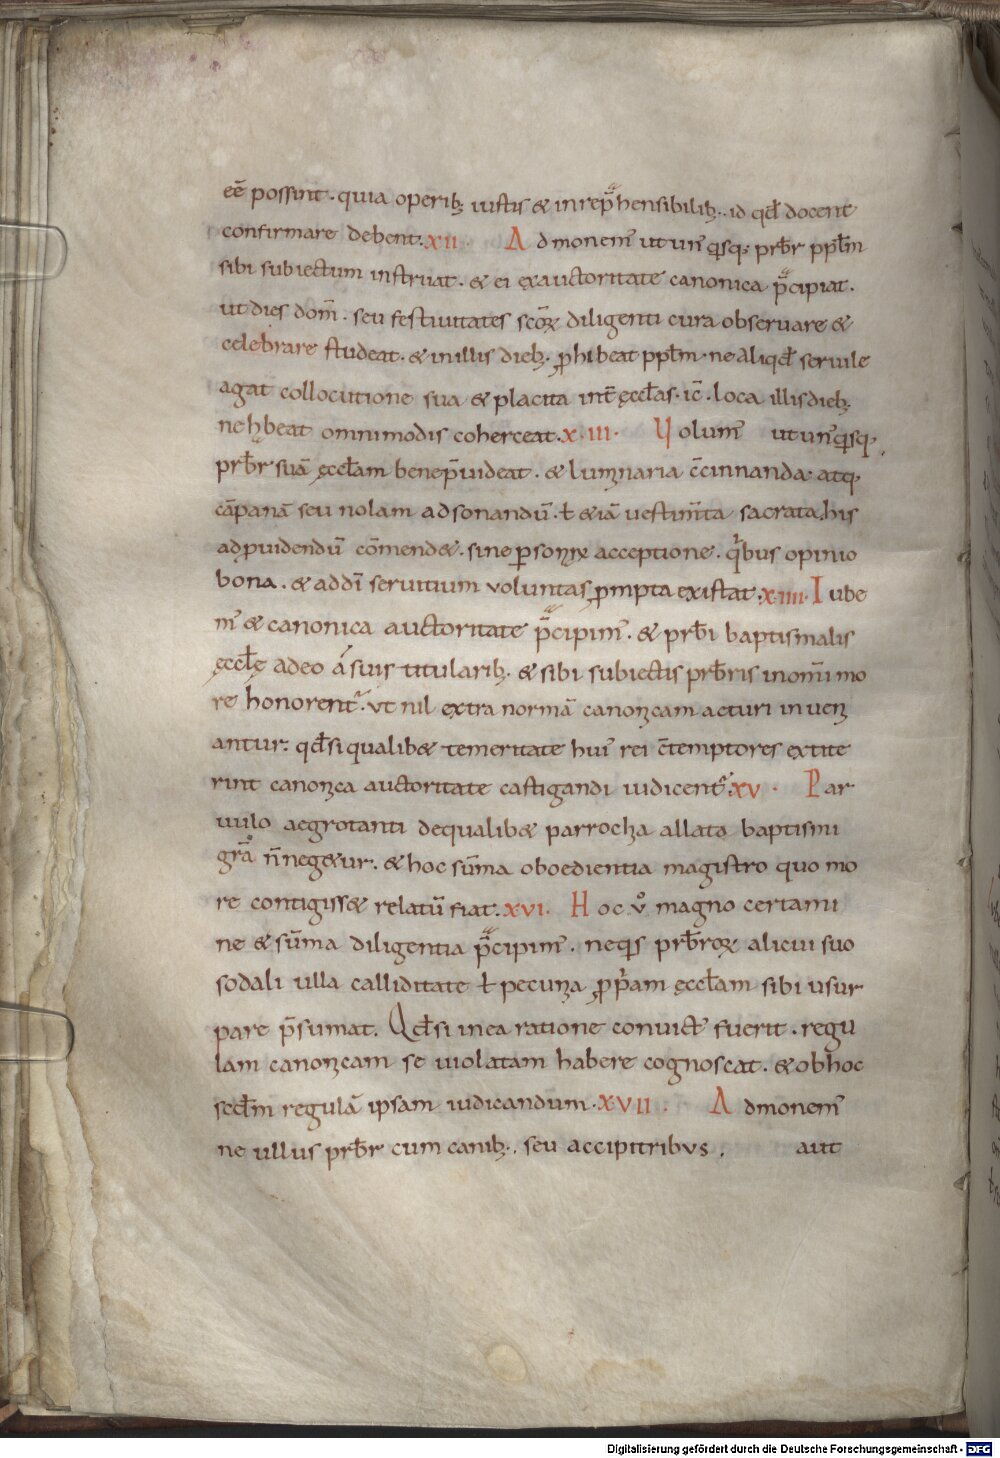 eē possint. quia operib; iustis & inrep̄hensibilib;. id qđ docent
confirmare debent. xii. Admonem̄ ut un̄ qsq; prƀr ppłm
sibi subiectum instruat. & ei exauctoritate canonica p̄cipiat.
ut dies dom̄. seu festiuitates scōꝝ diligenti cura obseruare &
celebrare studeat. & inillis dieb;. ꝓhibeat ppłm. ne aliqđ seruile
agat collocutione sua & placita int̄ ęccłas. ic̄. loca illis dieb;
ne hębeat omnimodis coherceat. x.iii. Volum̄ ut un̄qsq;
prƀr suā ęccłam benep̄uideat. & luminaria c̄cinnanda. atq;
cāpanā seu nolam adsonandū. ł &iā uestim̄ta sacrata, his
adꝓuidendū cōmend&. sine ꝑsonaꝝ acceptione. qͥbus opinio
bona. & addī seruitium voluntas ꝓmpta existat. x.iiii. Iube
m̄ & canonica auctoritate p̄cipim̄. & prƀi baptismalis
ęccłę adeo á suis titularib;. & sibi subiectis prƀris inom̄i mo
re honorent᷑. vt nil extra normā canonicam acturi inueni
antur. qđsi qualib& temeritate hui᷒ rei c̄temptores extite
rint canonica auctoritate castigandi iudicent᷑. xv. Par
uulo aegrotanti dequalib& parrochia allato baptismi
gr̄a n̄neg&ur. & hoc sūma oboedientia magistro quo mo
re contigiss& relatū fiat. xvi. Hoc v̊ magno certami
ne & sūma diligentia p̄cipim̄. neqͥs prƀroꝝ alicui suo
sodali ulla calliditate ł pecunia ꝓpͥam ęccłam sibi usur
pare p̄sumat. Qđsi inea ratione conuict᷒ fuerit. regu
lam canonicam se uiolatam habere cognoscat. & obhoc
scđm regulā ipsam iudicandum. XVII. Admonem̄
ne ullus prƀr cum canib;. seu accipitribus. aut
Digitalisierung gefördert durch die Deutsche Forschungsgemeinschaft - DFG